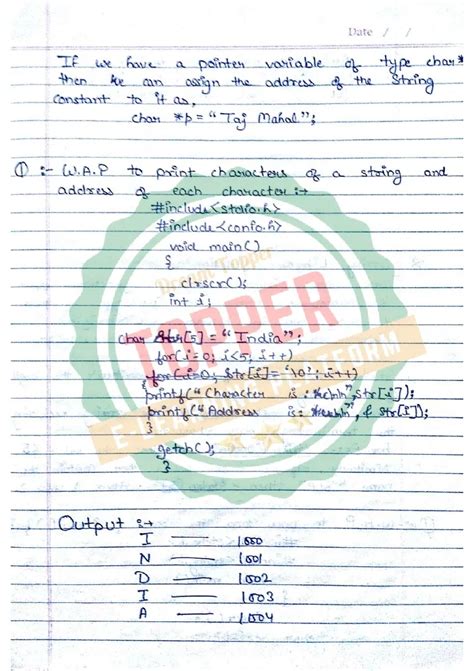 Date / /
If we have a pointer variable of type char*
then we can assign the address of the string
constant to it as,
char *p = "Taj Mahal";
① :- W.A.P to print characters of a string and
address of each character :→
#include<stdio.h>
#include<conio.h>
void main()
{
clrscr();
int i;
char str[5] = "India";
for(i=0; i<5; i++)
for(i=0; str[i]= '\0'; i++)
{printf("Character is: ,str[i]);
printf("Address is: , & str[i]);
}
getch();
}
Output :→
I — 1000
N — 1001
D — 1002
I — 1003
A — 1004
Dream Topper
TOPPER
E-LEARNING PLATFORM